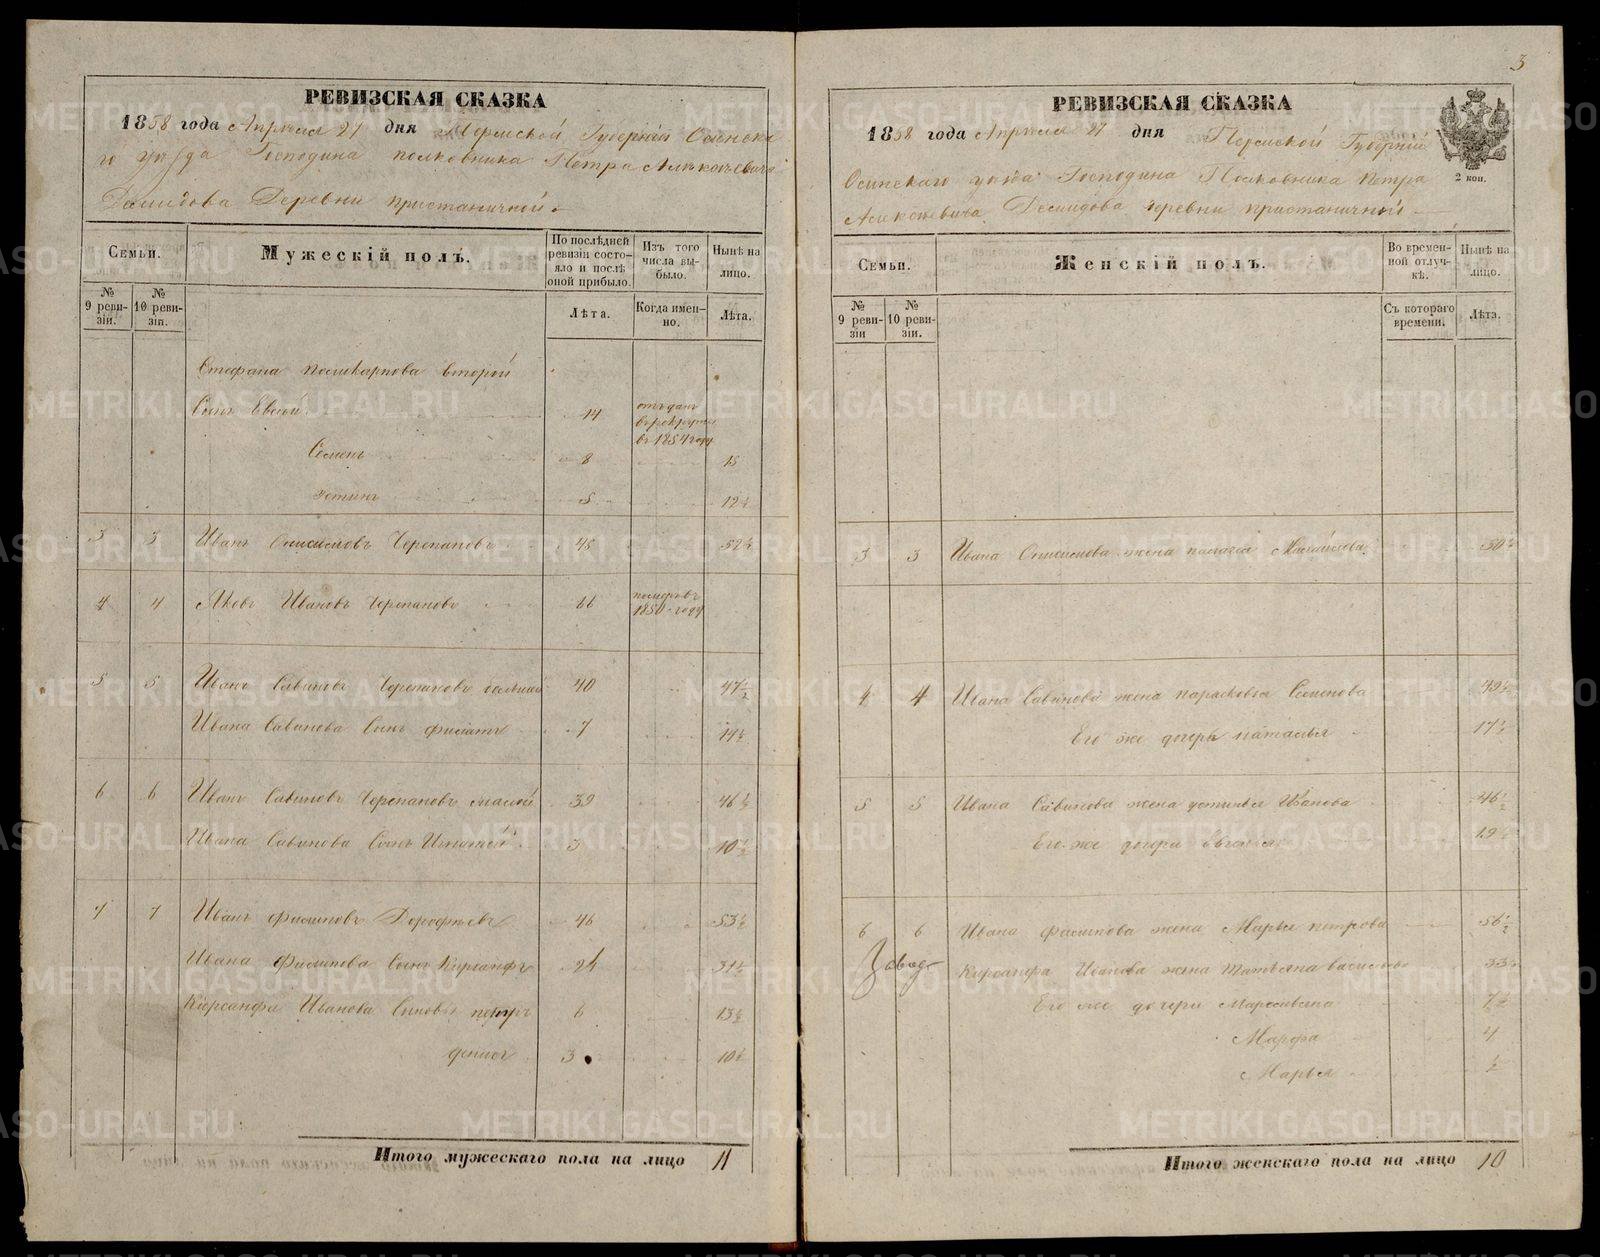 3
РЕВИЗСКАЯ СКАЗКА
1858 года Апреля 27 дня Пермской Губернии Осинска
го уезда Господина полковника Петра Алексеевича
Демидова Деревни пристаничной
Семьи.
Мужескій полъ.
По послѣдней ревизіи состояло и послѣ оной прибыло.
Изъ того числа выбыло.
Нынѣ на лицо.
№ 9 ревизіи.
№ 10 ревизіи.
Лѣта.
Когда именно.
Лѣта.
Стефана Поликарпова второй
Сынъ Евсей 14 отъданъ в рекруты в 1854 году
Семенъ 8 15
Устинъ 5 12½
3 3 Иванъ Онисимовъ Черепановъ 45 52½
4 4 Яковъ Ивановъ Черепановъ 66 померъ 1850 году
5 5 Иванъ Савиновъ Черепановъ большой 40 47½
Ивана Савинова Сынъ Филатъ 7 14½
6 6 Иванъ Савиновъ Черепановъ малой 39 46½
Ивана Савинова Сынъ Игнатей 3 10½
7 7 Иванъ Филиповъ Дорофѣевъ 46 53½
Ивана Филипова Сынъ Кирсанфъ 24 31½
Кирсанфа Иванова Сыновья петръ 6 13½
денисъ 3 10½
Итого мужескаго пола на лицо 11
РЕВИЗСКАЯ СКАЗКА
1858 года Апреля 27 дня Пермской Губернии
2 коп.
Осинскаго уезда Господина Полковника Петра
Алексеевича Демидова деревни пристаничной
Семьи.
Женскій полъ.
Во временной отлучкѣ.
Нынѣ на лицо.
№ 9 ревизіи
№ 10 ревизіи.
Съ котораго времени.
Лѣта.
3 3 Ивана Онисимова жена палагея Михайлова 50½
4 4 Ивана Савинова жена парасковья Семенова 49½
Его же дочерь наталья 17½
5 5 Ивана Савинова жена устинья Иванова 46½
Его же дочери 19½
6 6 Ивана Филипова жена Марья петрова 56½
Кирсанфа Иванова жена татьяна васильева 33½
Его же дочери 7½
Марфа 4
Марья ½
Итого женскаго пола на лицо 10
METRIKI.GASO-URAL.RU